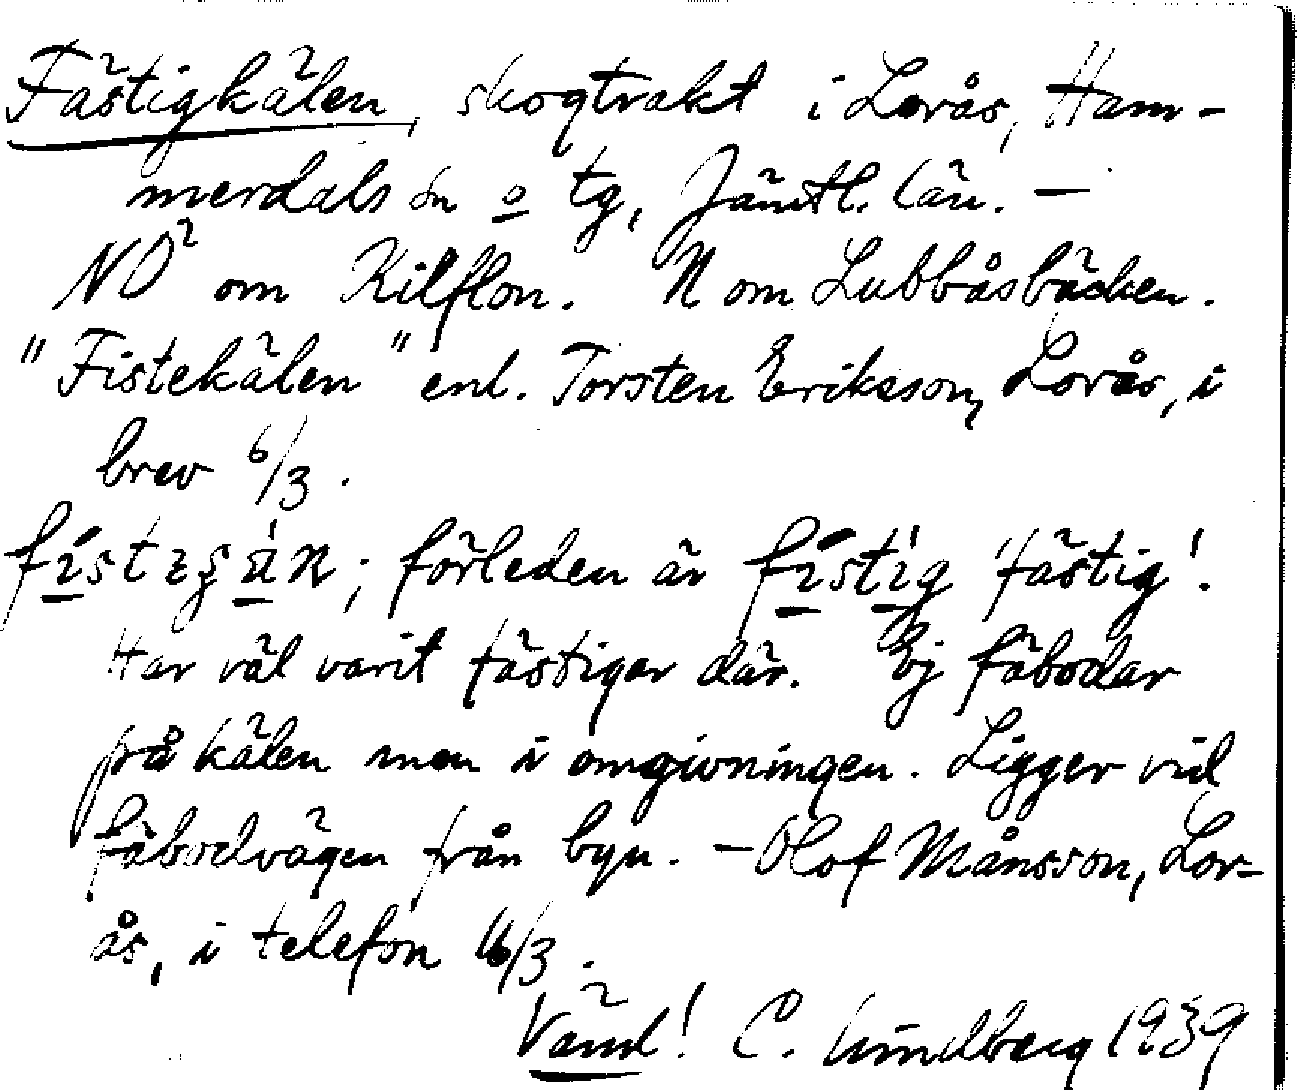 Fästigkälen, skogtrakt i Lorås, Ham-
merdals sn o tg, Jämtl. län. —
NÖ om Kilflon. N om Lubbåsbäcken.
"Fistekälen" enl. Torsten Eriksson, Lorås, i
brev 6/3.
förleden är fistig 'fästig'.
Har väl varit fästigar där. Ej fäbodar
på kälen men i omgivningen. Ligger vid
fäbodvägen från byn. – Olof Månsson, Lor-
ås, i telefon /3.
Vänd! C. Lindberg 1939